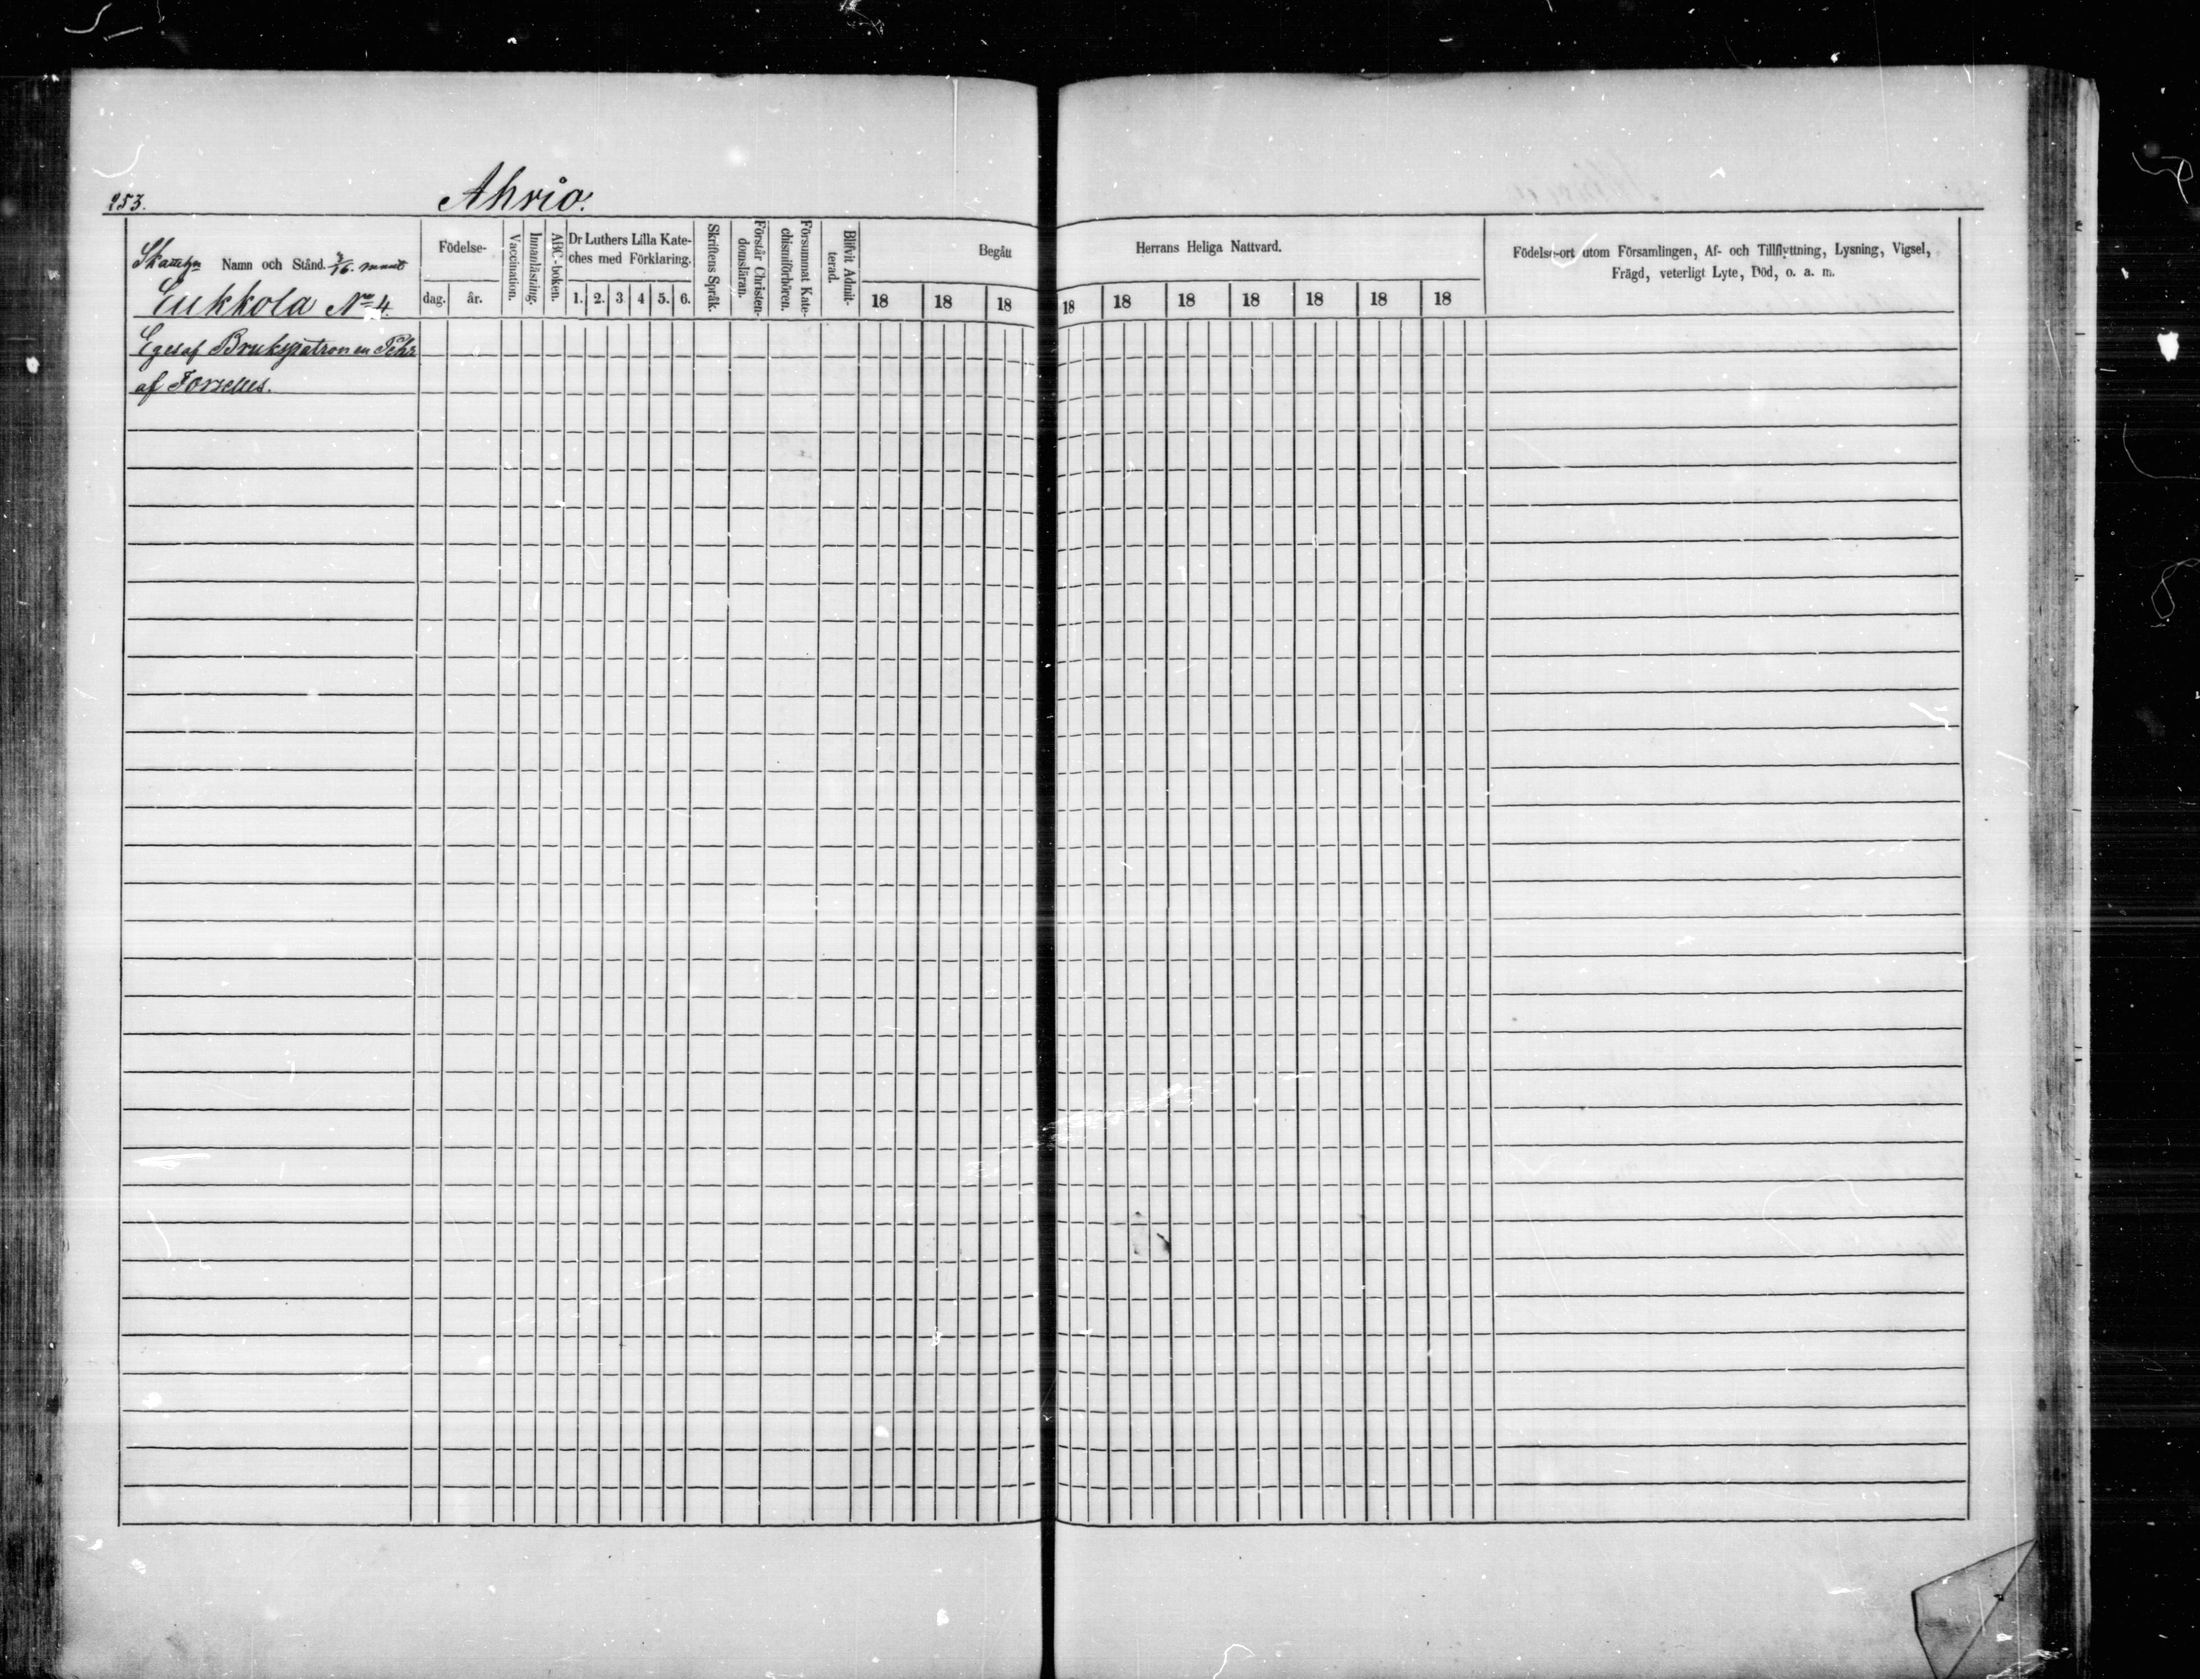 253.
Ahvio.
Skattehn Namn och Stånd. 3/16. mant
Eukkola No 4.
Födelse-
dag. år.
Vaccination.
Innanläsning.
ABC-boken.
Dr Luthers Lilla Kate-
ches med Förklaring.
1. 2. 3 4 5. 6.
Skriftens Språk.
Förstår Christen-
domsläran.
Försummat Kate-
chismiförhören.
Blifvit Admit-
terad.
Begått Herrans Heliga Nattvard.
18 18 18 18 18 18 18 18 18 18
Födelse-ort utom Församlingen, Af- och Tillflyttning, Lysning, Vigsel,
Frägd, veterligt Lyte, Död, o. a. m.
Eges af Brukspatronen Pehr
af Forselles.